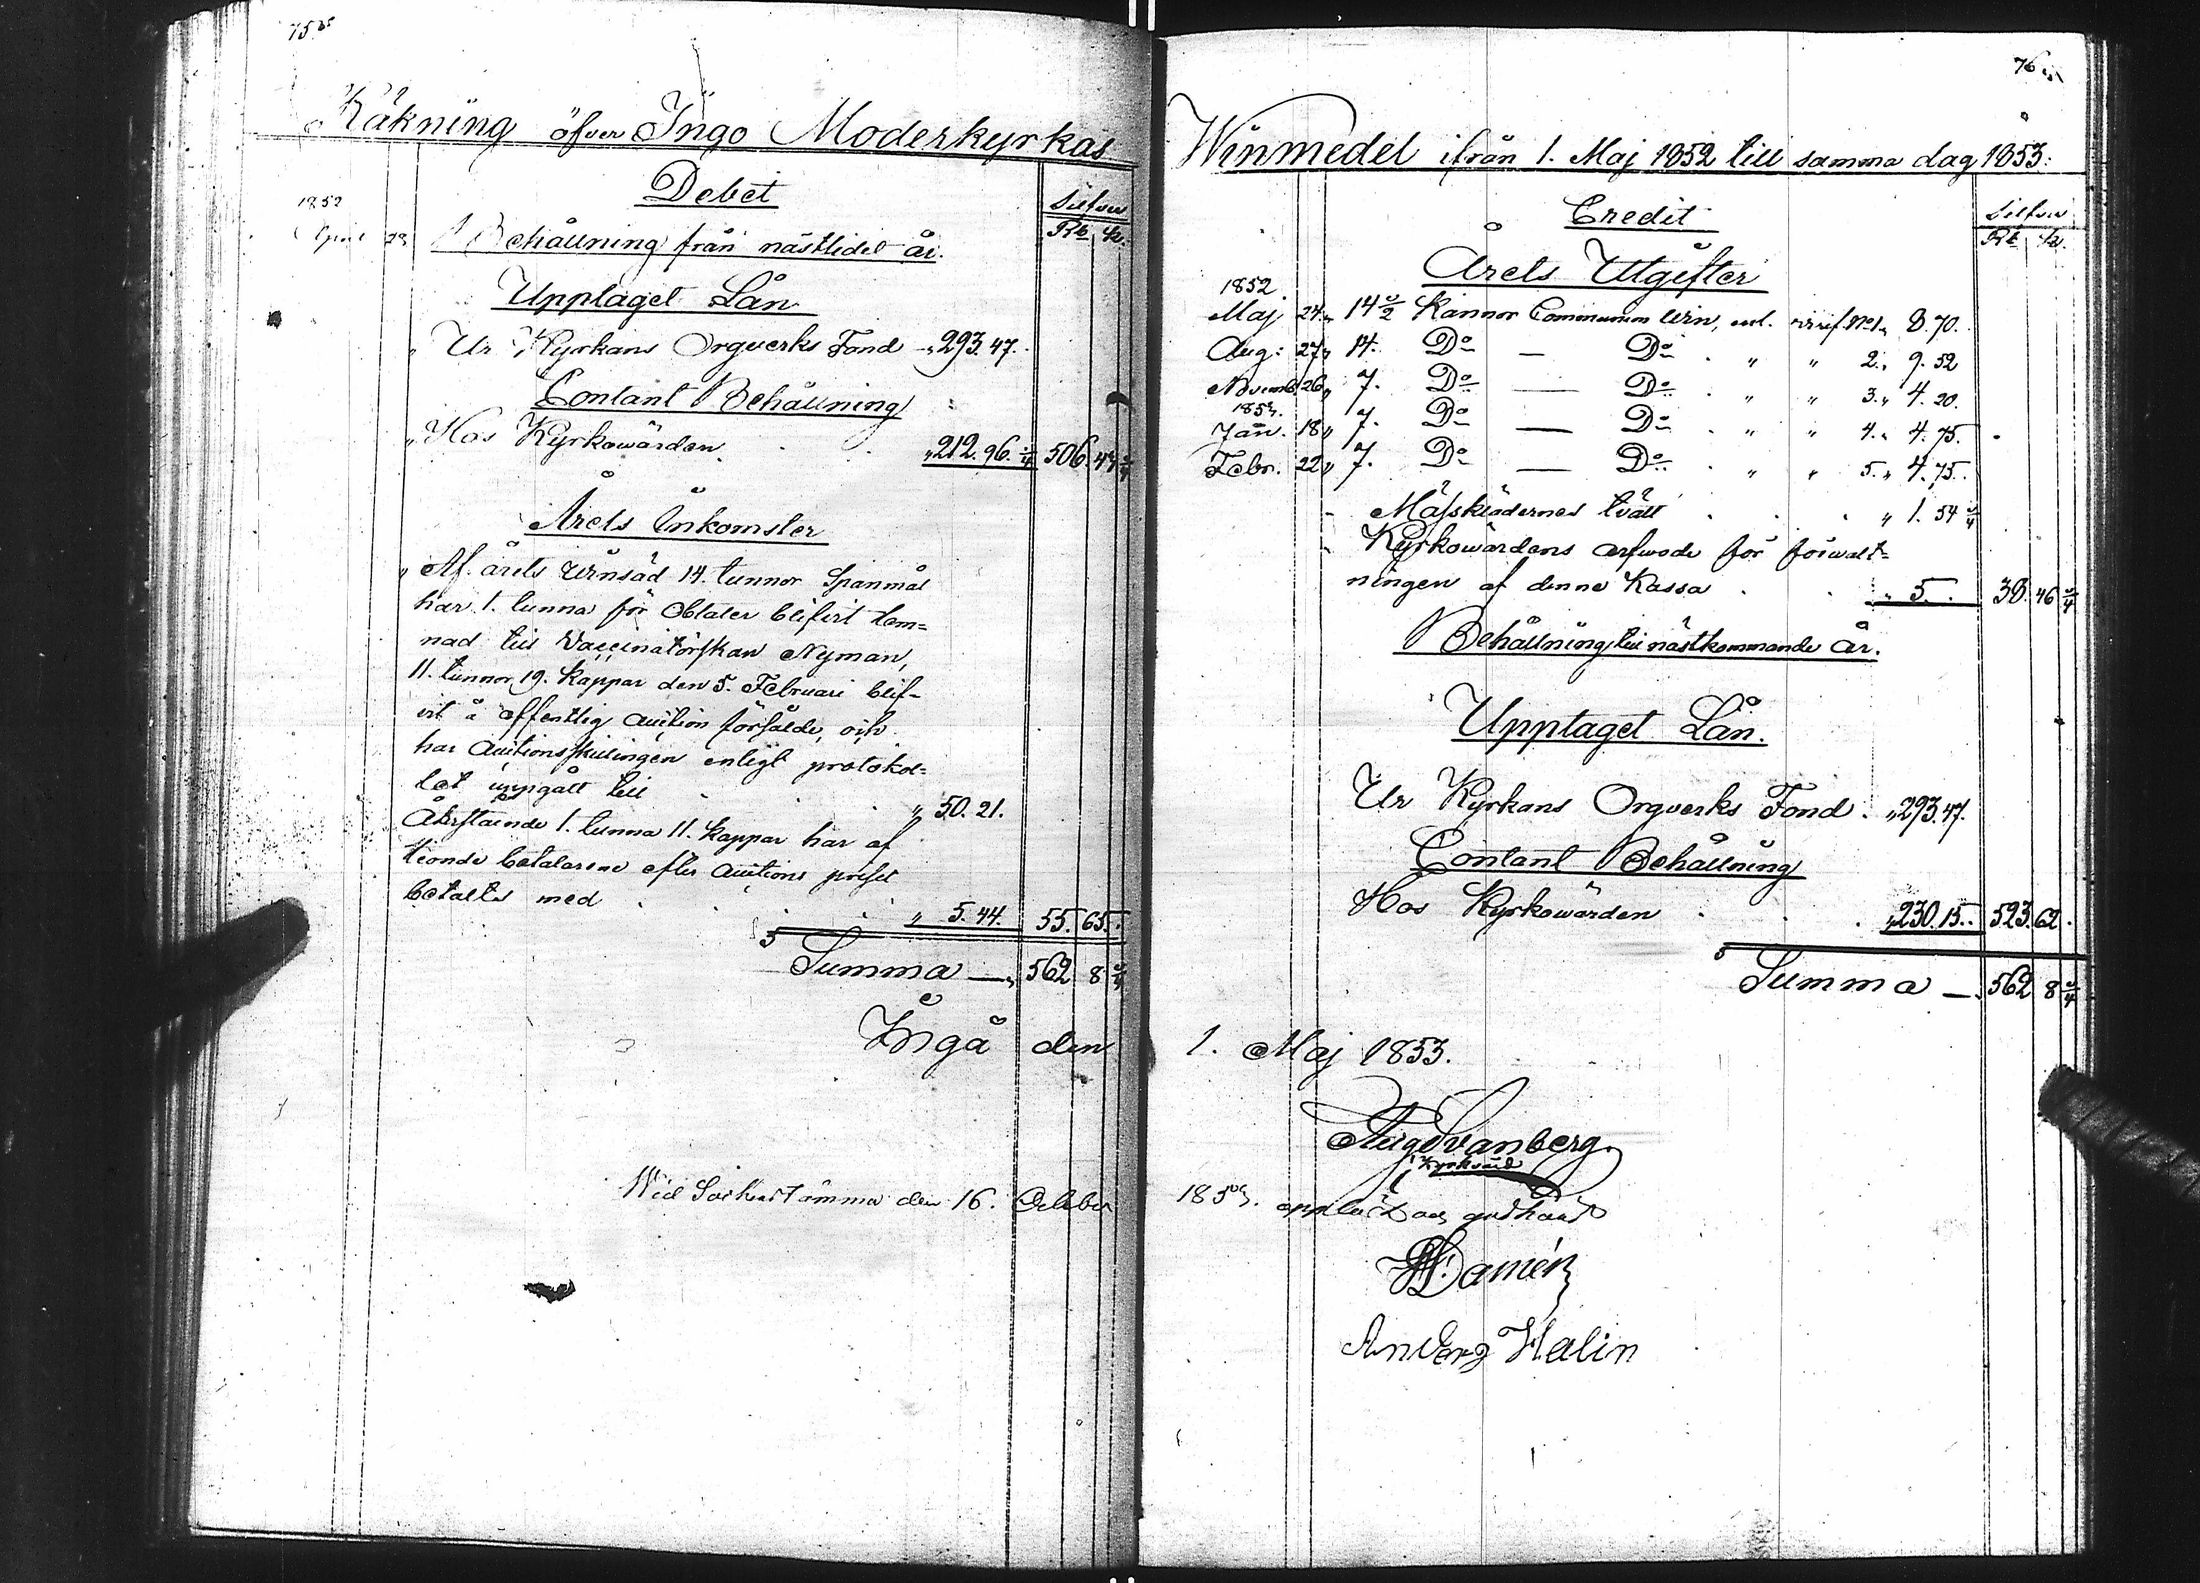 75.
Räkning öfver Ingo Moderkyrkas
Debet
Silfver
Rb. K.
1852
April 23
Behållning från nästlidet år.
Upptaget Lån
Ur Kyrkans Orgverks Fond " 293. 47.
Contant Behållning
" Hos Kyrkowärden " 212. 96. 506. 43
Årets Inkomster
" Af årets winsäd 14. tunnor Spanmål
har 1. tunna för Oblater blifvit lem=
nad till Vaccinatörskan Nyman,
11. tunnor 19. Kappar den 5. Februari blif=
vit å offentlig auction försålde, och
har Auctionsskillingen enligt protokol=
let uppgått till " 50. 21.
Återstående 1. tunna 11. Kappar har af
tionde betalarene efter auctions priset
betalts med " 5. 44. 55. 65.
Summa — 562 8 3/4
Ingå den
Wid Sockenstämma den 16. October
76
Winmedel ifrån 1. Maj 1852 till samma dag 1853.
Credit
Silfver
Rb. K.
Årets Utgifter
1852
Maj 24. " 14 1/2 Kannor Communion win, enl. verif. No 1. " 8. 70.
Aug: 27 " 14. Do — Do " " 2. " 9. 52
Novemb. 26 " 7. Do — Do " " 3. " 4. 20.
1853.
Jann. 18 " 7. Do — Do " " 4. " 4. 75.
Febr. 22 " 7. Do — Do " " 5. " 4. 75.
Mässklädernes tvätt " 1. 54 3/4
Kyrkowärdens arfwode för förwalt=
ningen af denna Kassa " 5. . 38. 46 3/4
Behållning till nästkommande År.
Upptaget Lån.
Ur Kyrkans Orgverks Fond . " 293. 47.
Contant Behållning
Hos Kyrkowärden " 230. 15. 523. 62.
Summa — 562 8 3/4
1. Maj 1853.
Aug Svanberg
Kyrkvärd
1853. uppläst och godkänd
Damén
Halin